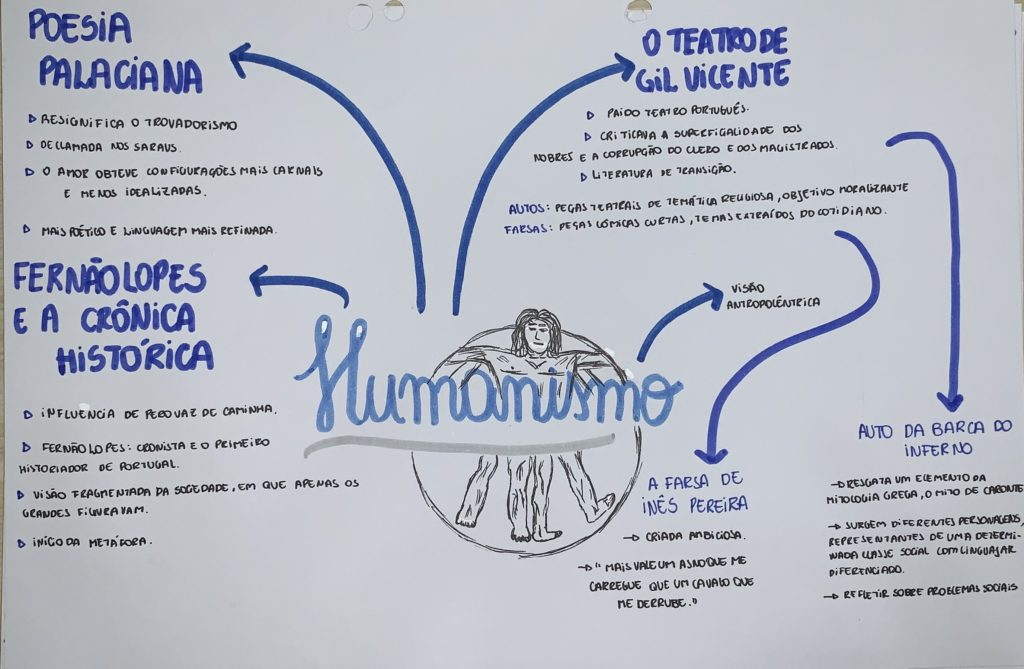 POESIA
PALACIANA
RESIGNIFICA O TROVADORISMO
DECLAMADA NOS SARAUS.
O AMOR OBTEVE CONFIGURAÇÕES MAIS CARNAIS
E MENOS IDEALIZADAS.
MAIS POÉTICO E LINGUAGEM MAIS REFINADA.
FERNÃO LOPES
E A CRÔNICA
HISTÓRICA
INFLUENCIA DE PERO VAZ DE CAMINHA.
FERNÃO LOPES: CRONISTA E O PRIMEIRO
HISTORIADOR DE PORTUGAL.
VISÃO FRAGMENTADA DA SOCIEDADE, EM QUE APENAS OS
GRANDES FIGURAVAM.
INÍCIO DA METÁFORA.
Humanismo
O TEATRO DE
GIL VICENTE
PAI DO TEATRO PORTUGUÊS.
CRITICAVA A SUPERFICIALIDADE DOS
NOBRES E A CORRUPÇÃO DO CLERO E DOS MAGISTRADOS.
LITERATURA DE TRANSIÇÃO.
AUTOS: PEÇAS TEATRAIS DE TEMÁTICA RELIGIOSA, OBJETIVO MORALIZANTE
FARSAS: PEÇAS CÔMICAS CURTAS, TEMAS EXTRAÍDOS DO COTIDIANO.
VISÃO
ANTROPOCÊNTRICA
A FARSA DE
INÊS PEREIRA
→ CRIADA AMBICIOSA.
→ "MAIS VALE UM ASNO QUE ME
CARREGUE QUE UM CAVALO QUE
ME DERRUBE."
AUTO DA BARCA DO
INFERNO
→ RESGATA UM ELEMENTO DA
MITOLOGIA GREGA, O MITO DE CARONTE
→ SURGEM DIFERENTES PERSONAGENS,
REPRESENTANTES DE UMA DETERMI-
NADA CLASSE SOCIAL COM LINGUAJAR
DIFERENCIADO.
→ REFLETIR SOBRE PROBLEMAS SOCIAIS